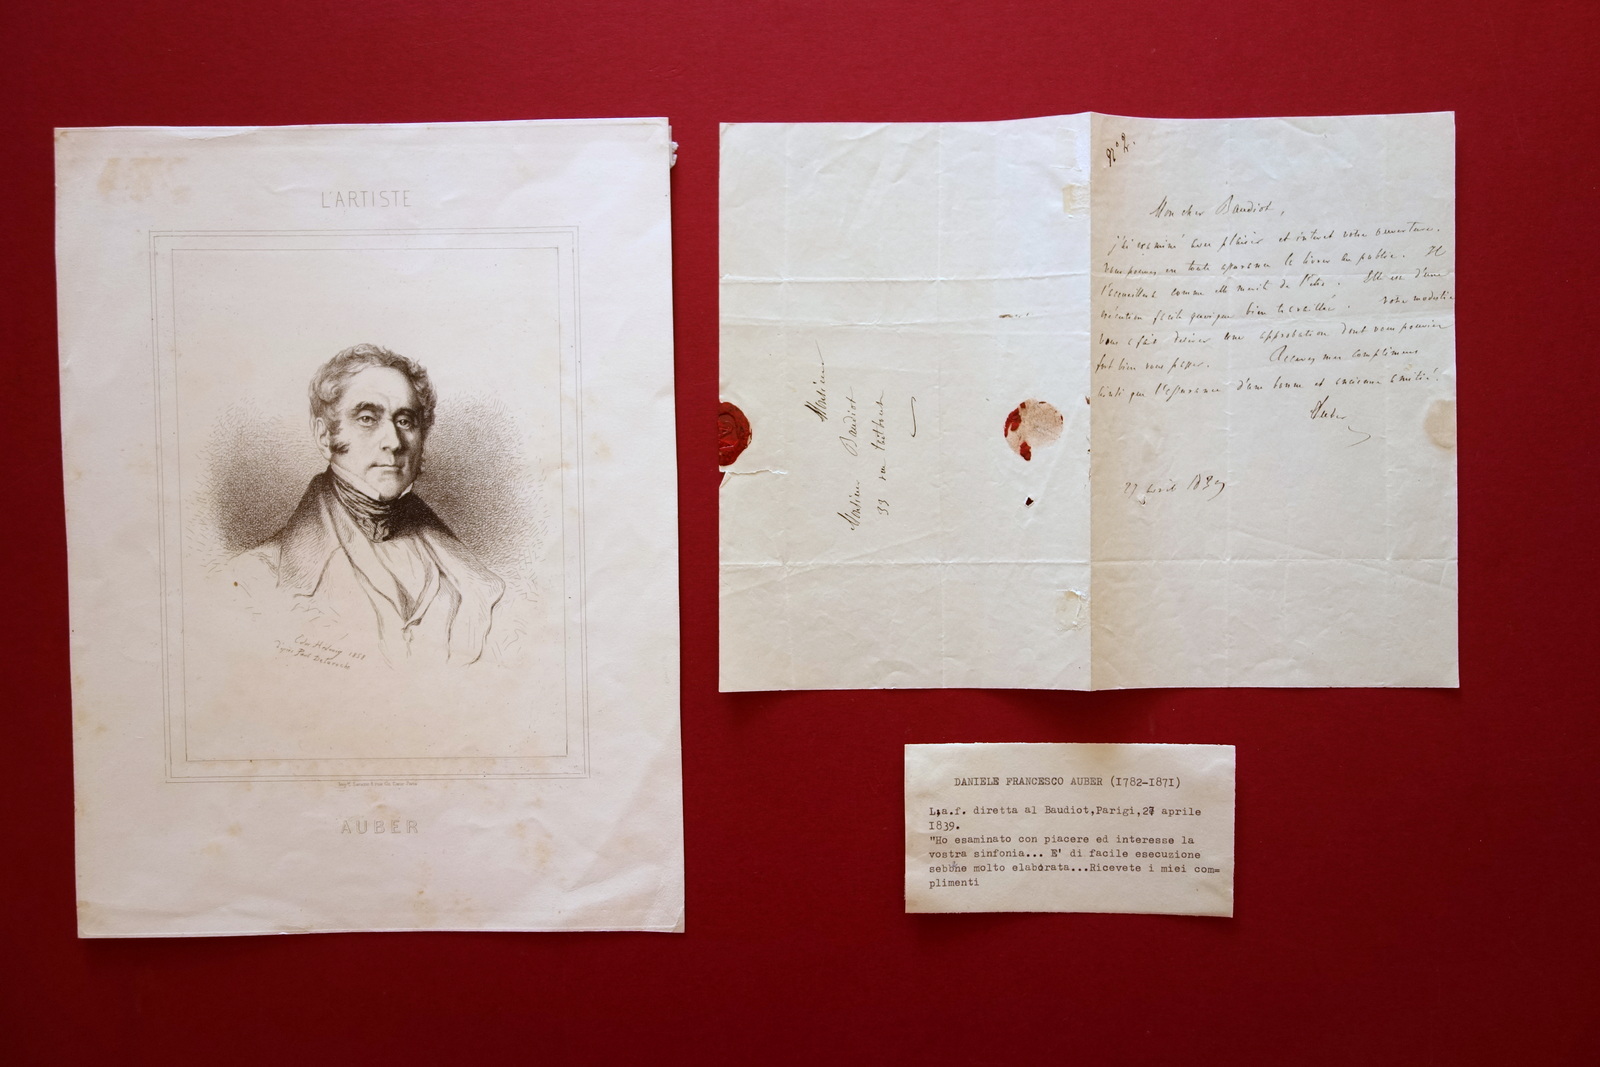 L'ARTISTE
1858
d'après Paul Delaroche
AUBER
Monsieur
Monsieur Baudiot
33 rue
n° 2.
Mon cher Baudiot,
j'ai examiné avec plaisir et intérêt votre ouverture.
vous pouvez en toute assurance la livrer au public. Il
l'accueillera comme elle mérite de l'être. Elle est d'une
exécution facile quoique bien travaillée. votre modestie
vous a fait désirer une approbation dont vous pouviez
fort bien vous passer. Recevez mes complimens
ainsi que l'assurance d'une bonne et ancienne amitié.
Auber
27 avril 1839
DANIELE FRANCESCO AUBER (1782-1871)
L.a.f. diretta al Baudiot,Parigi,27 aprile
1839.
"Ho esaminato con piacere ed interesse la
vostra sinfonia... E' di facile esecuzione
sebbene molto elaborata...Ricevete i miei com=
plimenti